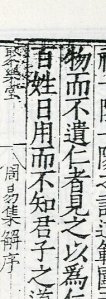 陰一陽之謂道範圍
物而不遺仁者見之以為仁
百姓日用而不知君子之道
周易集解序
聚樂堂